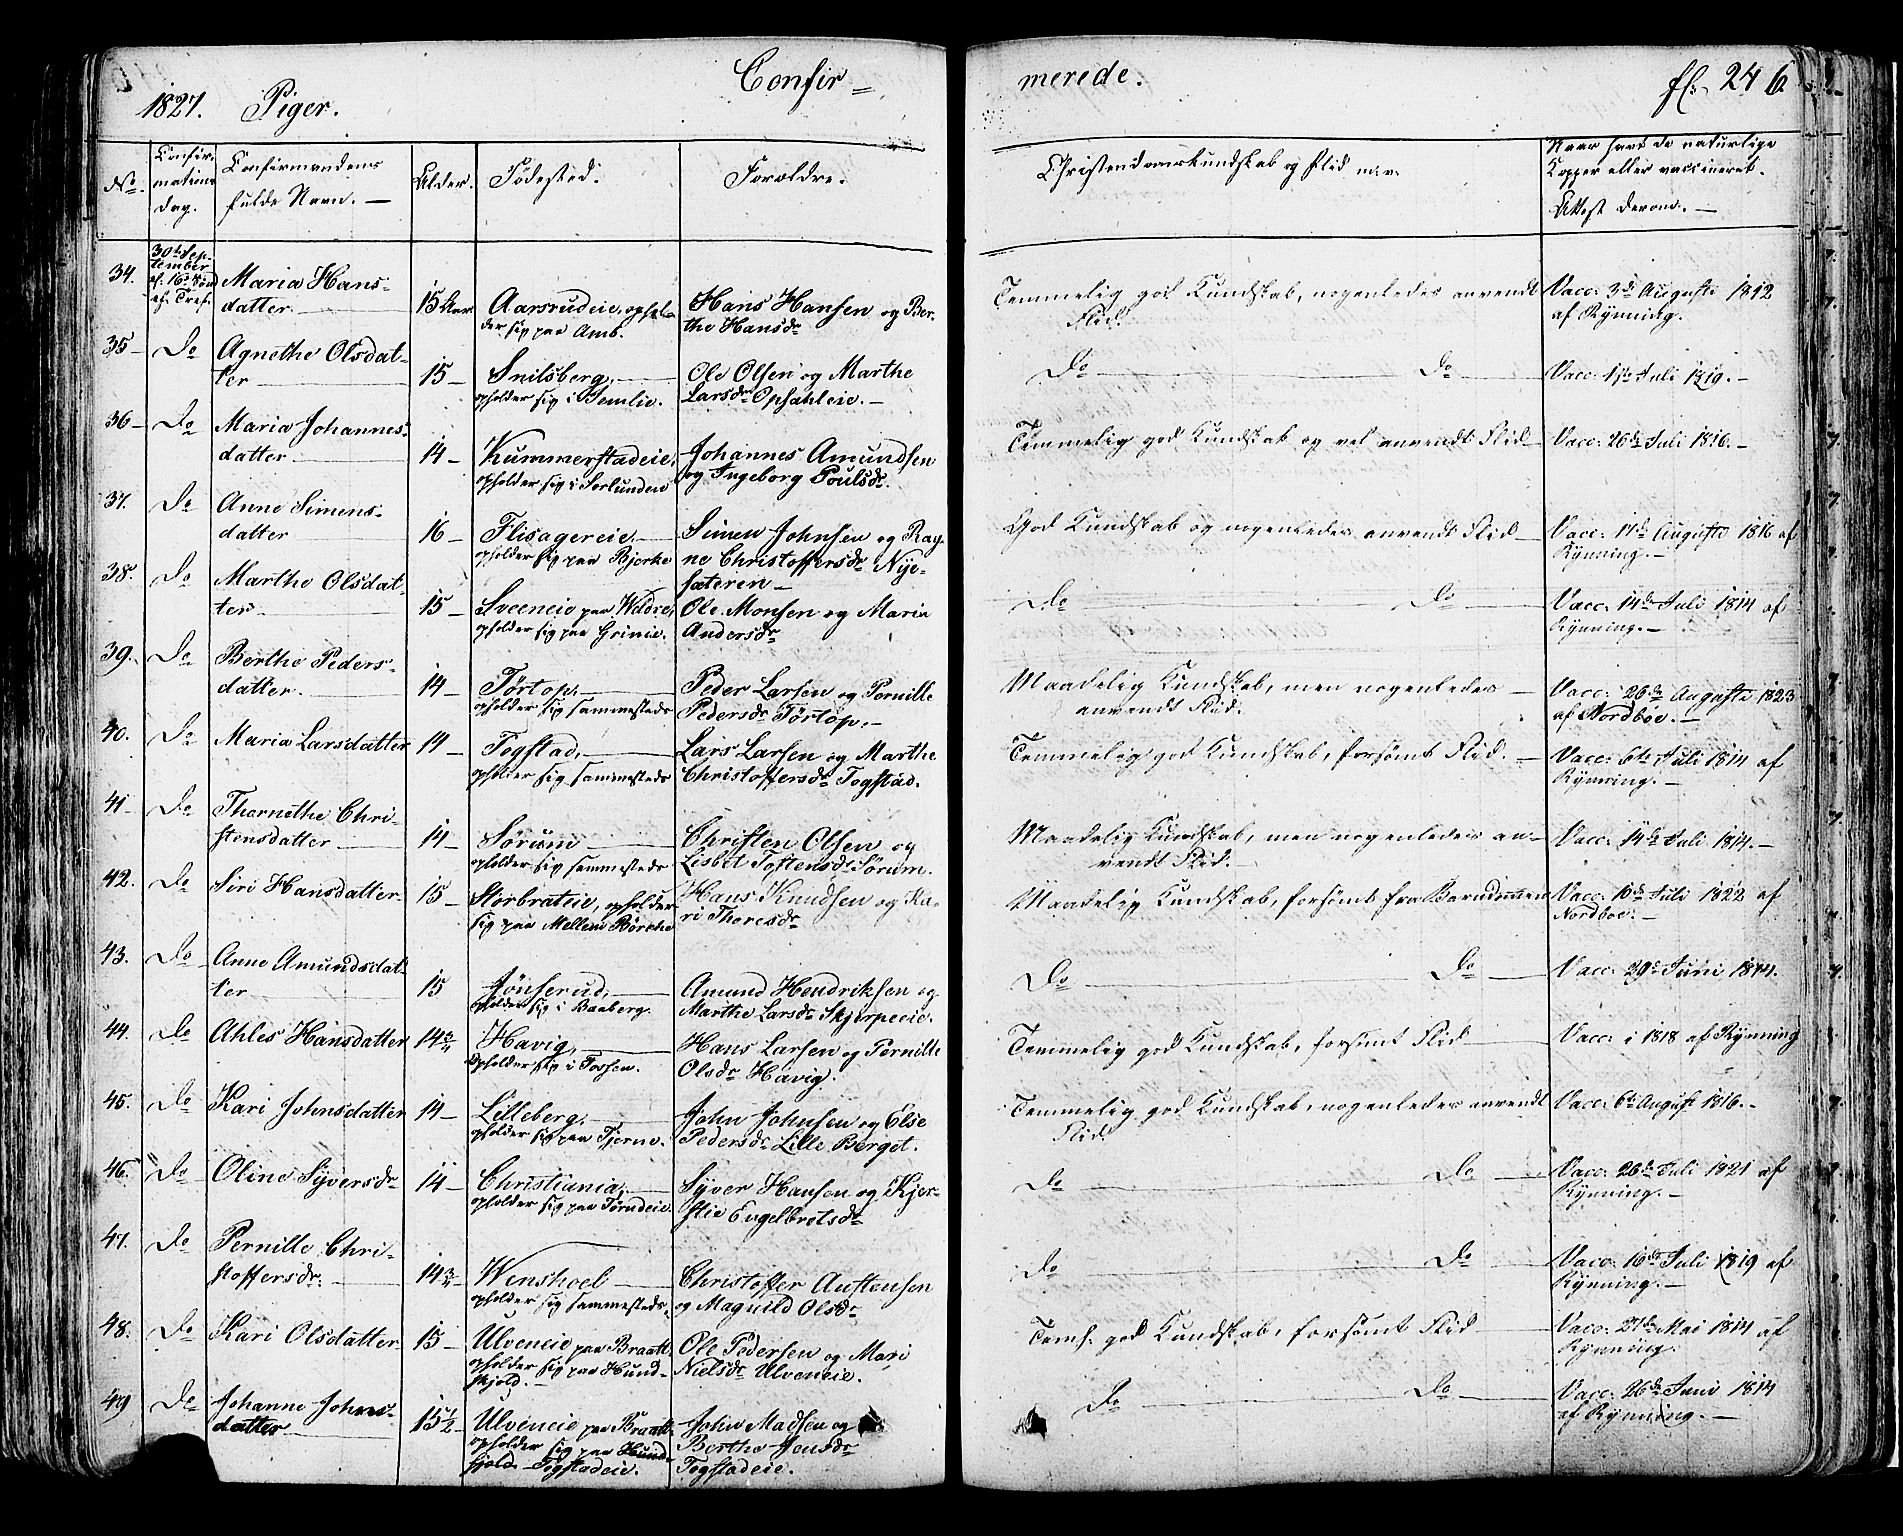 1827. Piger. Confir=
merede. fl: 246
No. Confirmations Dag. Confirmandens fulde Navn. — Alder. Fødested. Forældre. Christendomskundskab og Flid m: v: Naar havt de naturlige Kopper eller vaccineret. Attest derom. —
34. 30te September ef: 16de Sønd ef. Tref. Maria Hans-
datter. 15 Aar Aarsrudeie, ophol-
der sig paa Amb. Hans Hansen og Ber-
the Hansdr Temmelig god Kundskab, nogenledes anvendt
Flid. Vacc: 3de Augusti 1812
af Rynning.
35 – Do Agnethe Olsdat-
ter 15 – Snilsberg,
opholder sig i Semlie. Ole Olsen og Marthe
Larsdr Opsahleie. – Do Do Vacc: Juli 1819. –
36 – Do Maria Johannes-
datter 14 – Kummerstadeie,
opholder sig i Sorlundeie Johannes Amundsen
og Ingeborg Poulsdr. Temmelig god Kundskab og vel anvendt Flid – Vacc: 26de Juli 1816. –
37. Do Anne Simens-
datter 16 – Flisagereie
opholder sig paa Bjerke Simen Johnsen og Rag-
ne Christoffersdr Nye-
sæteren – God Kundskab og nogenledes anvendt Flid – Vacc: 17de Augusti 1816 af
Rynning. –
38. Do Marthe Olsdat-
ter 15 – Sveeneie paa Veldre,
opholder sig paa Grinie. Ole Monsen og Maria
Andersdr Do Do Vacc: 14de Juli 1814 af
Rynning. –
39. Do Berthe Peders-
datter. 14 – Tørtop,
opholder sig sammesteds Peder Larsen og Pernille
Pedersdr Tørtop. – Maadelig Kundskab, men nogenledes –
anvendt Flid. Vacc: 26de Augusti 1823
af Nordboe. –
40. Do Maria Larsdatter 14 – Togstad,
opholder sig sammesteds Lars Larsen og Marthe
Christoffersdr Togstad. Temmelig god Kundskab, forsømt Flid. – Vacc: 6te Juli 1814 af
Rynning. –
41 – Do Thornethe Chri-
stensdatter 14 – Sørum
opholder sig sammesteds Christen Olsen og
Lisbet Tostensdr Sørum. Maadelig Kundskab, men nogenledes an-
vendt Flid. – Vacc: 14de Juli 1814. –
42. Do Siri Hansdatter 15 – Storbrateie, opholder
sig paa Mellem Børche Hans Knudsen og Ka-
ri Thoresdr Maadelig Kundskab, forsømt fra Barndommen Vacc: 10de Juli 1822 af
Nordboe. –
43. Do Anne Amundsdat-
ter 15 Jønserud,
opholder sig i Baaberg. Amund Hendriksen og
Marthe Larsdr Skjerpeeie. Do Do Vacc: 29de Juni 1814.
44. Do Ahles Hansdatter 14 3/4 Havig,
opholder sig i Tossen. Hans Larsen og Pernille
Olsdr Havig. Temmelig god Kundskab, forsømt Flid Vacc: i 1818 af Rynning
45. Do Kari Johnsdatter 14 – Lilleberg,
opholder sig paa Tjerne. John Johnsen og Else
Pedersdr Lille Berget. Temmelig god Kundskab, nogenledes anvendt
Flid. Vacc: 6te August 1816. –
46. Do Oline Syversdr 14 – Christiania,
opholder sig paa Tørudeie. Syver Hansen og Kjer-
stie Engelbretsdr Do Do Vacc: 26de Juli 1821 af
Rynning. –
47. Do Pernille Chri-
stoffersdr: 14 3/4 Wenshoel
opholder sig sammesteds. Christoffer Austensen
og Magnild Olsdr Do Do Vacc: 16de Juli 1819 af
Rynning. –
48. Do Kari Olsdatter 15 – Ulveneie paa Braatt.
opholder sig paa Hund-
skjold. – Ole Pedersen og Mari
Nielsdr Ulveneie. Teml: god Kundskab, forsømt Flid Vacc: 27de Mai 1814 af
Rynning.
49 Do Johanne Johns-
datter 15 1/2 Ulveneie paa Braatt.
opholder sig paa Hund-
skjold – Togstadeie. John Madsen og
Berthe Jensdr
Togstadeie. Do Do Vacc: 26de Juni 1814
af Rynning. –